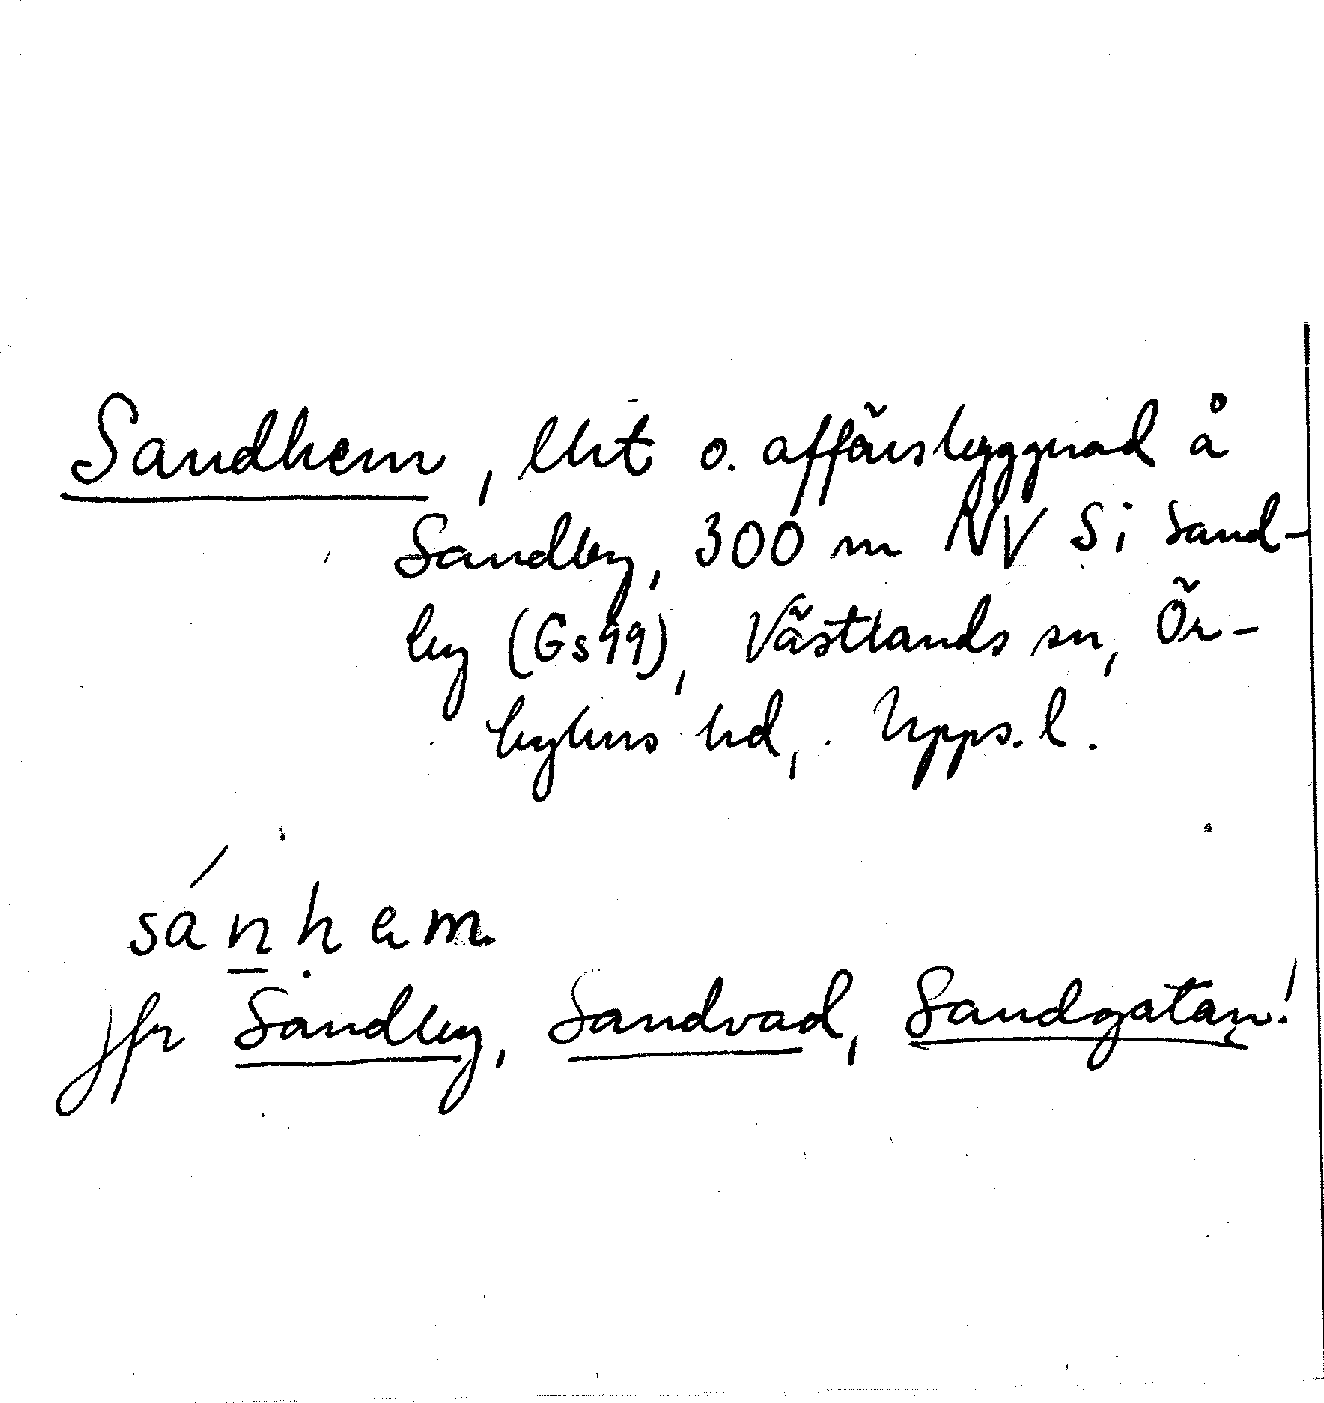 Sandhem, lht o. affärsbyggnad å
Sandby, 300 m NV S i Sand-
by (Gs99), Västlands sn, Ör-
byhus hd, Upps. l.
sánhem.
jfr Sandby, Sandvad, Sandgatan!